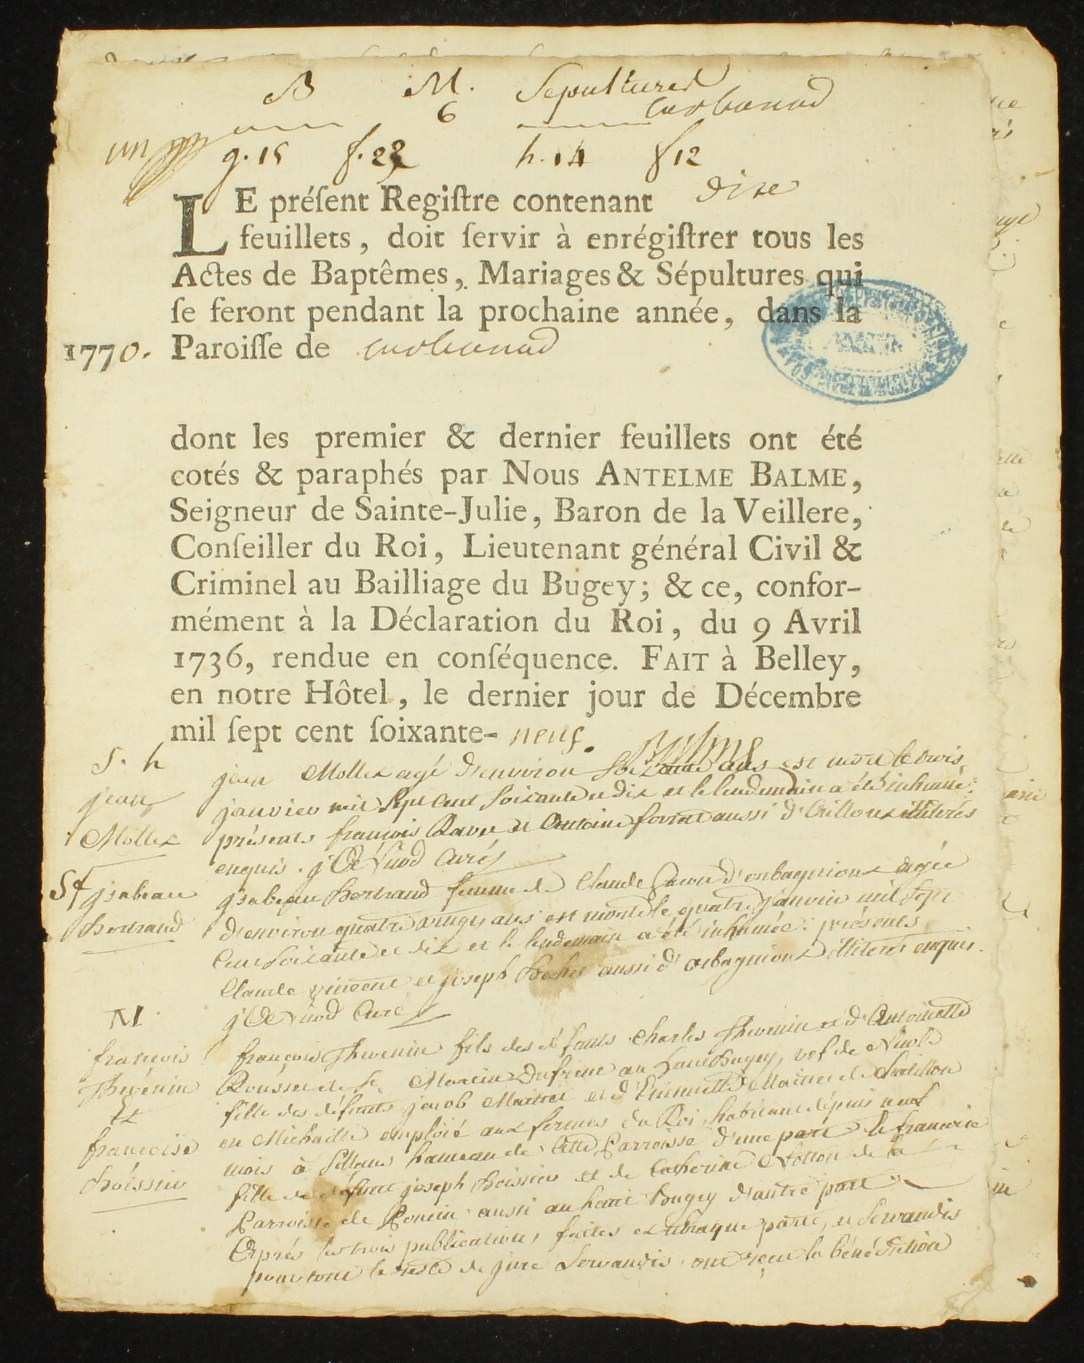 B M. Sepultures
6 corbonod
un g. 15 f. 22 h. 14 f 12
LE préſent Regiſtre contenant dixe
feuillets, doit ſervir à enrégiſtrer tous les
Actes de Baptêmes, Mariages & Sépultures qui
ſe feront pendant la prochaine année, dans la
1770. Paroiſſe de corbonod
dont les premier & dernier feuillets ont été
cotés & paraphés par Nous ANTELME BALME,
Seigneur de Sainte-Julie, Baron de la Veillere,
Conſeiller du Roi, Lieutenant général Civil &
Criminel au Bailliage du Bugey; & ce, confor-
mément à la Déclaration du Roi, du 9 Avril
1736, rendue en conſéquence. FAIT à Belley,
en notre Hôtel, le dernier jour de Décembre
mil ſept cent ſoixante- neuf. Balme
S. h
jean
Mollex
jean Mollex agé d'environ ans est mort le trois
janvier mil sept cent soixante et dix et le lendemain a été inhumé:
présents françois Ravoz et Antoine aussi d' illiterés
enquis. Curé
Sf jsabeau
bertrand
jsabeau bertrand femme de Claude d'orbagnioux agée
d'environ quatre vingts ans est morte le quatre janvier mil sept
cent soixante et dix et le lendemain a été inhumée: présents
Claude vincent et joseph aussi d'orbagnioux illiterés enquis.
Curé
M
francois
Thevenin
et
francoise
boissin
françois Thevenin fils des défunts Charles Thevenin et d'Antoinette
de St Martin Dufrene au haut Bugey, vef de
fille des défunts jacob Maitret et d' Maitret de Chatillon
en Michaille emploié aux fermes du Roi habitant depuis neuf
mois à hameau de cette Parroisse d'une part & francoise
fille de défunt joseph boissin et de Catherine de la
Parroisse de Poncin aussi au haut Bugey d'autre part
Après les trois publications faites en chaque parte, et
pour tout le reste de jure ont reçu la bénédiction